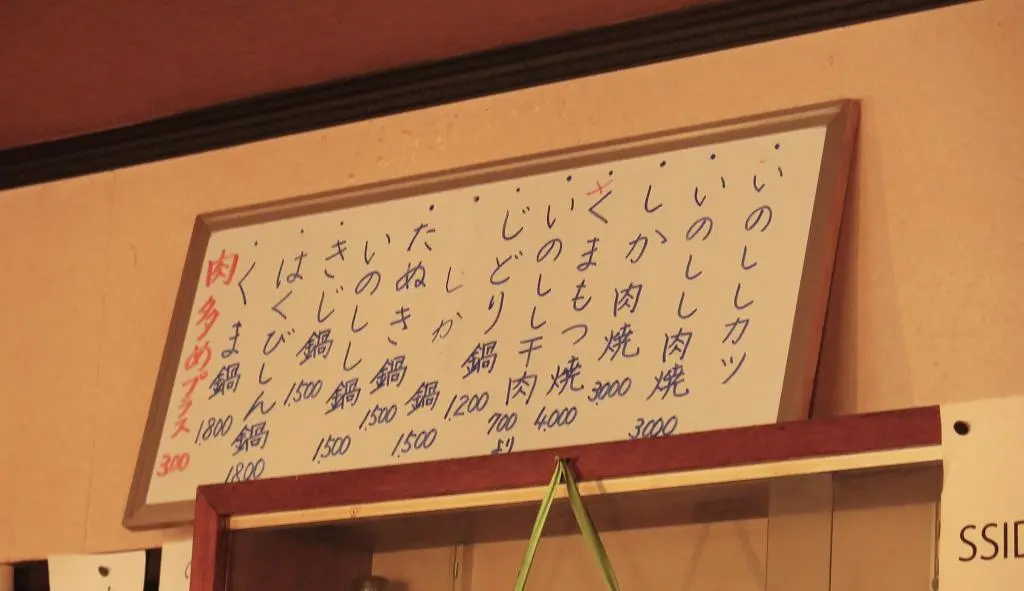 ・いのししカツ
・いのしし肉焼 3000
・しか肉焼 3000
・くまもつ焼 4.000
・いのしし干肉 700より
・じどり鍋 1.200
・しか鍋 1.500
・たぬき鍋 1.500
いのしし鍋 1.500
・きじ鍋 1.500
・はくびしん鍋 1800
・くま鍋 1.800
肉多めプラス 300
SSID